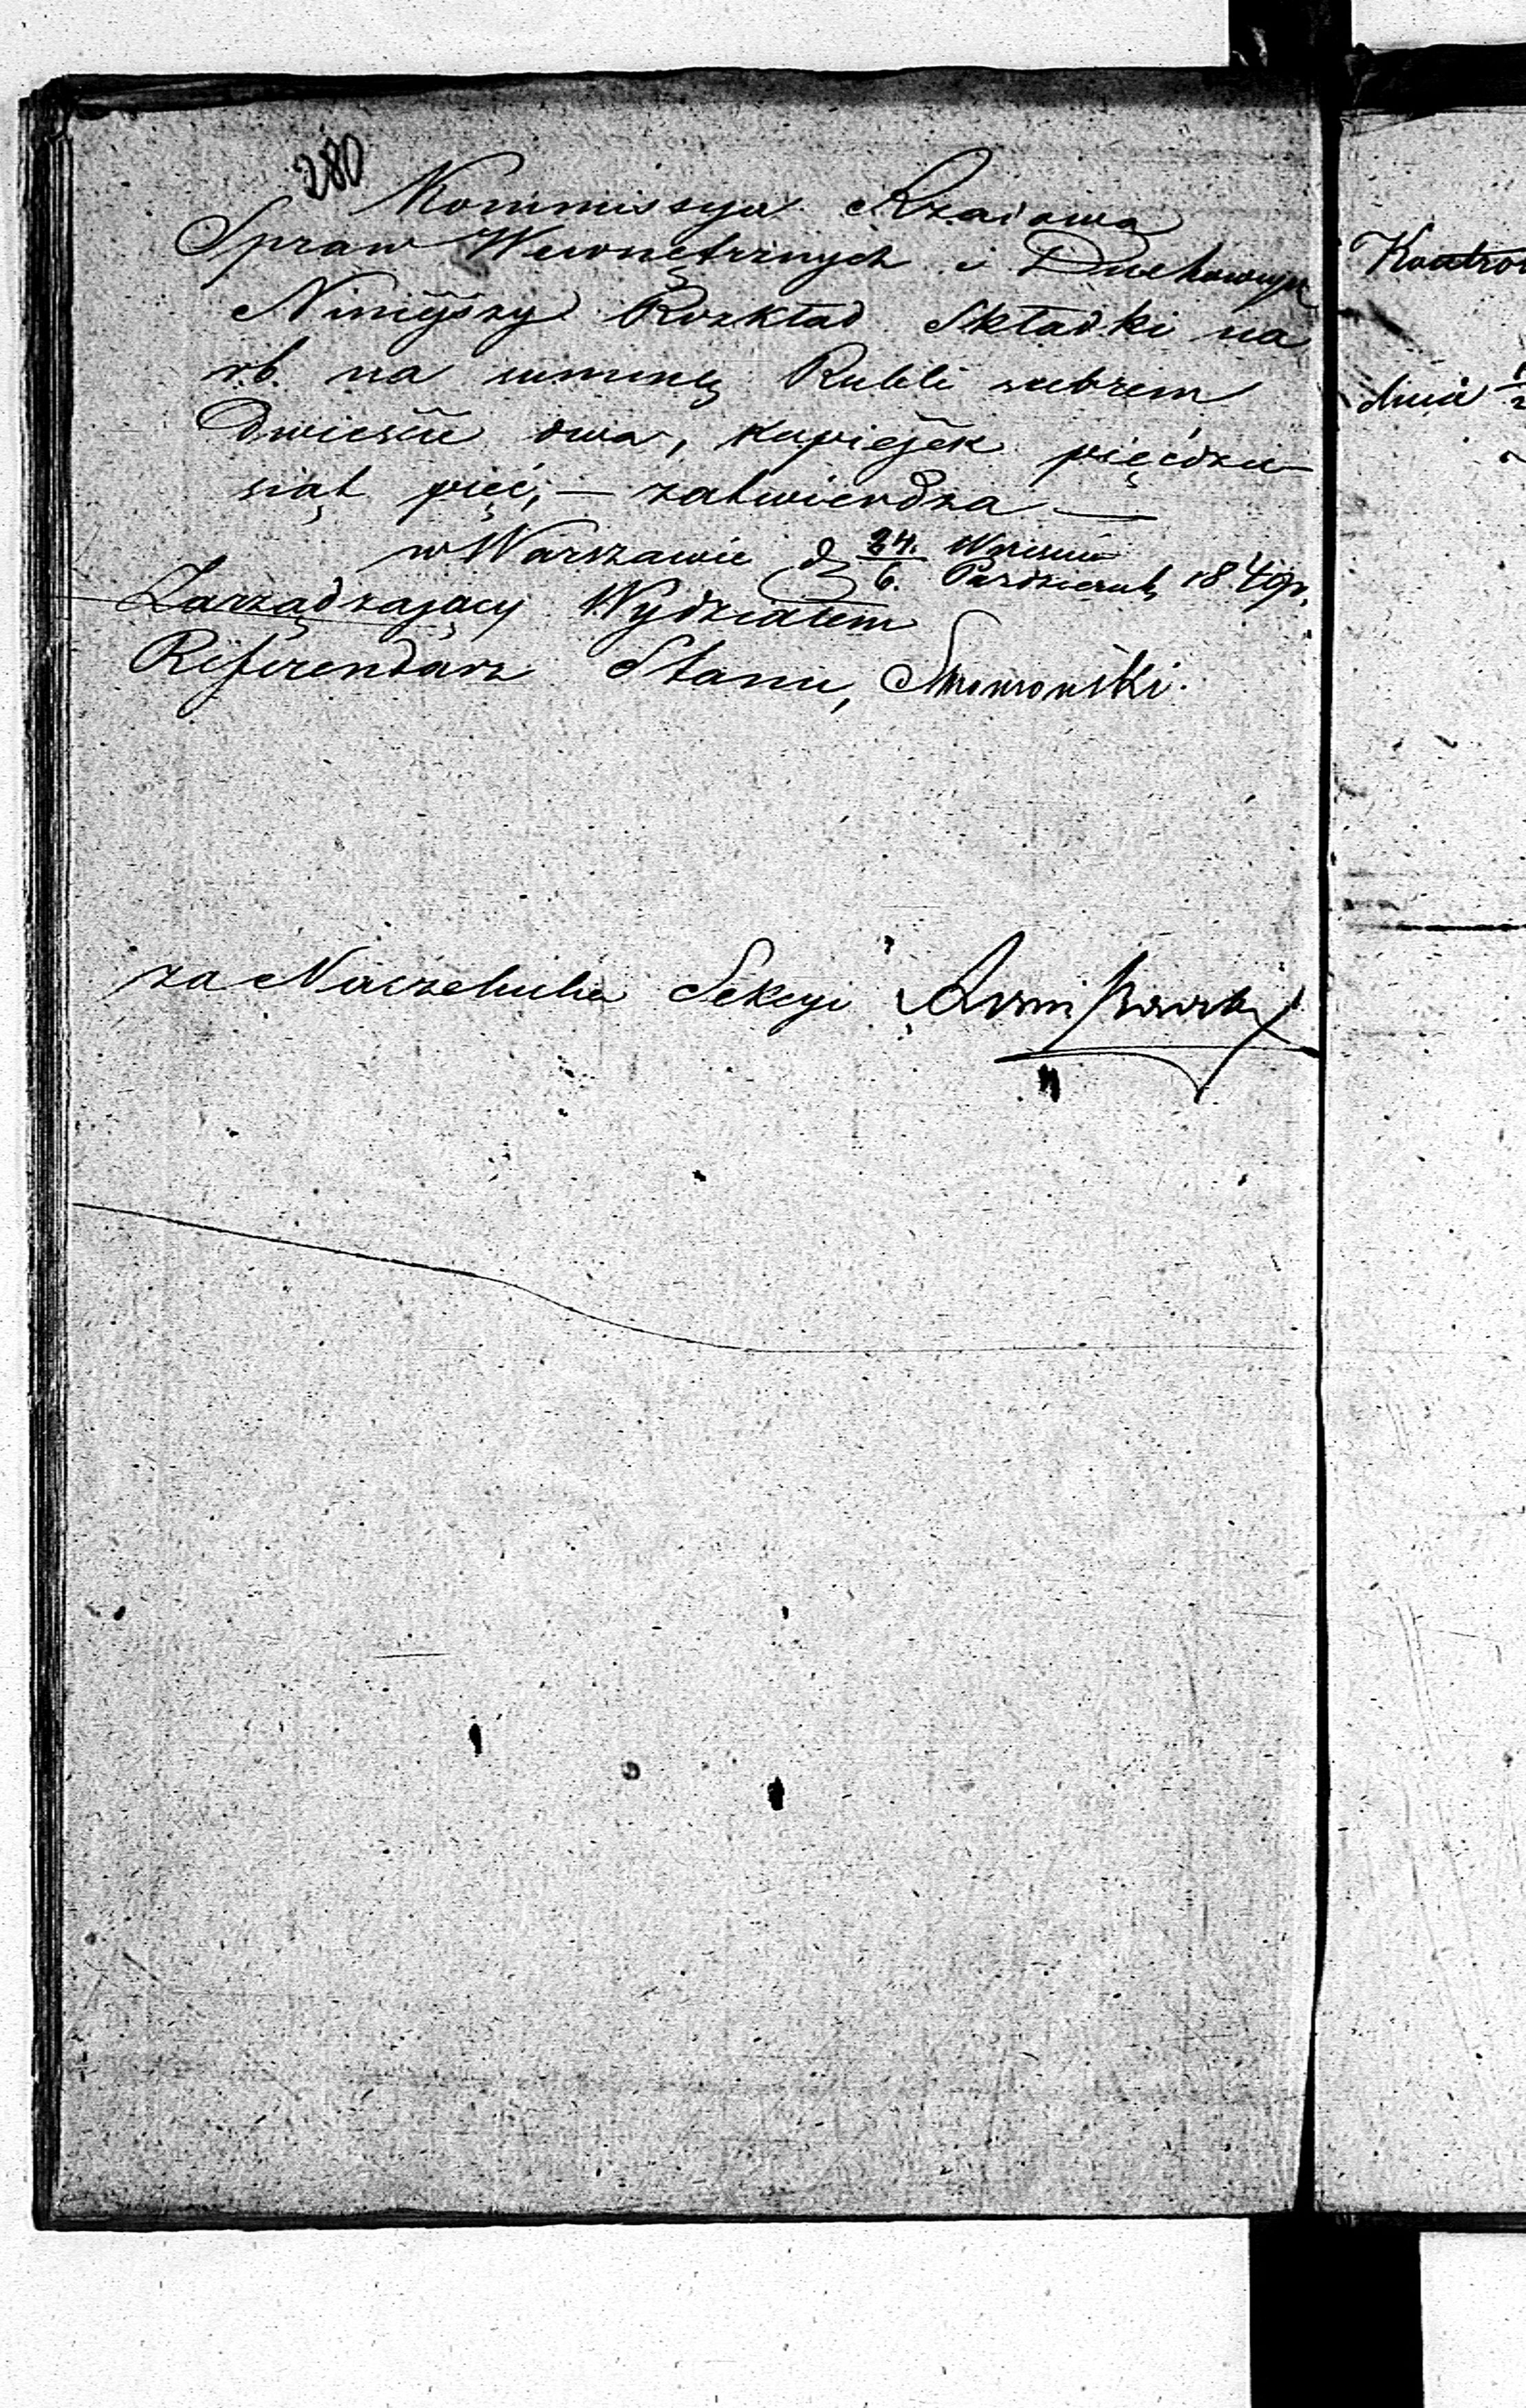 280
Kommissya Rządowa
Spraw Wewnętrznych i Duchownych
Ninieyszy Rozkład Składki na
r.b. na summę Rubli srebrem
Dwieście dwa, kopiejek pięćdzie-
siąt pięć, — zatwierdza —
w Warszawie d 24. Września
6. Październ. 1840 r.
Zarządzający Wydziałem
Referendarz Stanu,
za Naczelnika Sekcyi
Kontro
dnia